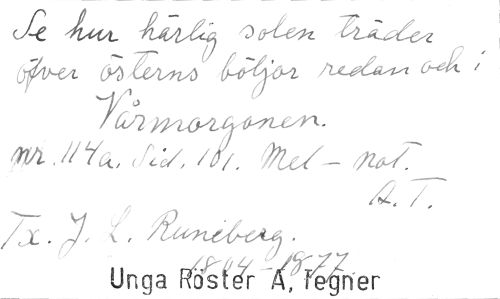 Se hur härlig solen träder
öfver österns böljor redan och i
Vårmorgonen.
nr. 114a. Sid. 101. Mel - not.
A. T.
Tx. J. L. Runeberg.
1804-1877.
Unga Röster A, Tegner